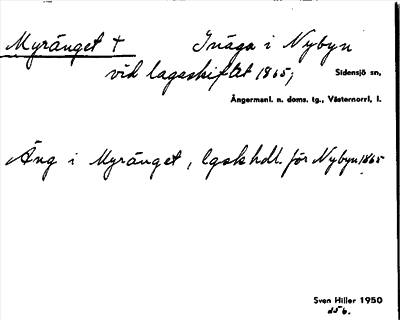 Myränget + Inäga i Nybyn
vid lagaskiftet 1865; Sidensjö sn,
Ångermanl. n. doms. tg., Västernorrl. l.
Äng i Myränget, lgskhdl. för Nybyn 1865
Sven Hiller 1950